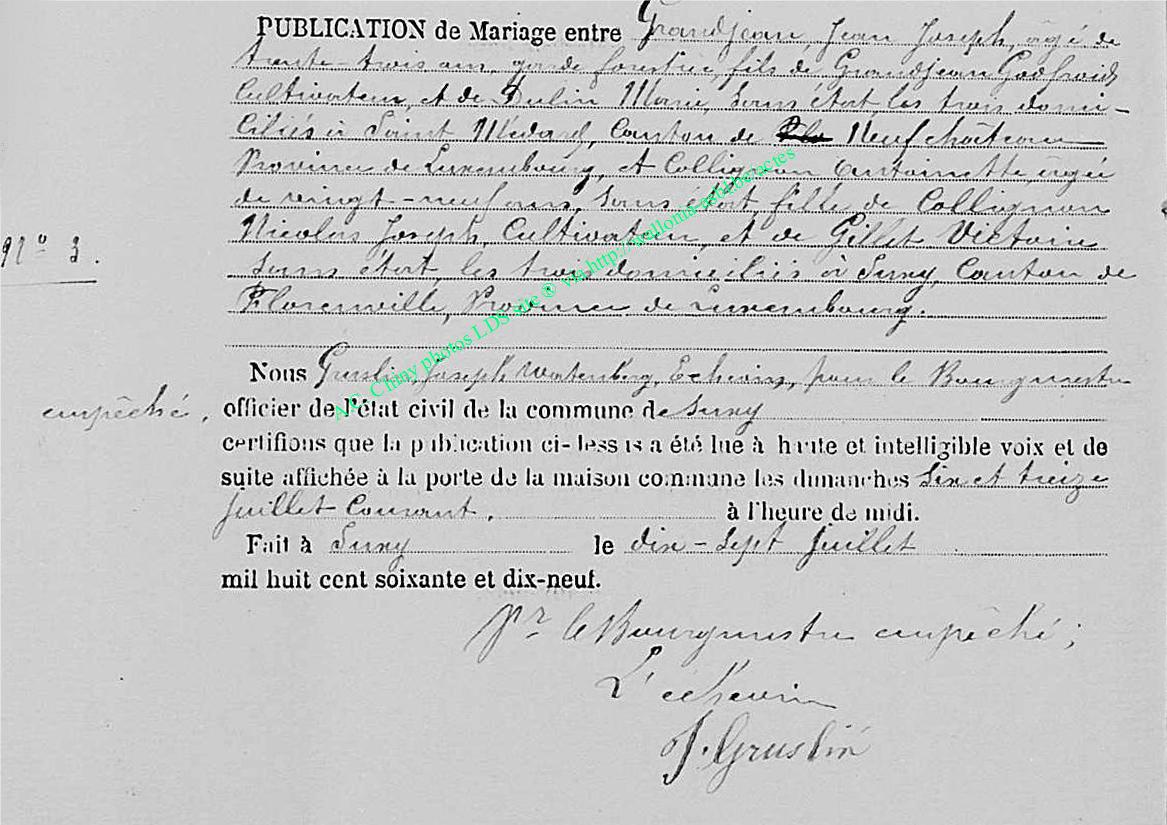 PUBLICATION de Mariage entre Grandjean, Jean Joseph, agé de
trente-trois ans, garde forestier, fils de Grandjean Godfroid
Cultivateur, et de Dulin Marie, Sans état, les trois domi-
ciliés à Saint Médard, Canton de Neufchâteau
Province de Luxembourg, et Collignon Antoinette, agée
de vingt-neuf ans, Sans état fille de Collignon
Nicolas Joseph, Cultivateur, et de Gillet Victoire
N° 3.
Sans état, les trois domiciliés à Suxy, Canton de
Florenville, Province de Luxembourg.
A.C. Chiny photos LDS site ® via http://wallonia-asbl.be/actes
Nous Gruslin, Joseph Echevin, pour le Bourgmestre
empêché, officier de l'état civil de la commune de Suxy
certifions que la publication ci-dessus a été lue à haute et intelligible voix et de
suite affichée à la porte de la maison commune les dimanches Six et treize
Juillet Courant, à l'heure de midi.
Fait à Suxy le dix-Sept Juillet
mil huit cent soixante et dix-neuf.
Pr le Bourgmestre empêché;
L'échevin
J. Gruslin